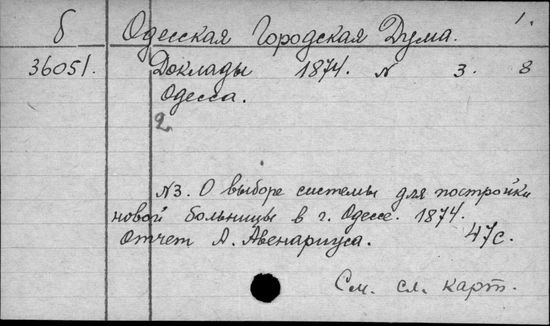 1.
б Одесская Городская Дума.
36051. Доклады 1874. N 3. 8
Одесса.
2
N3. О выборе системы для постройки
новой больницы в г. Одессе. 1874.
Отчет А. Авенариуса. 47с.
См. сл. карт.